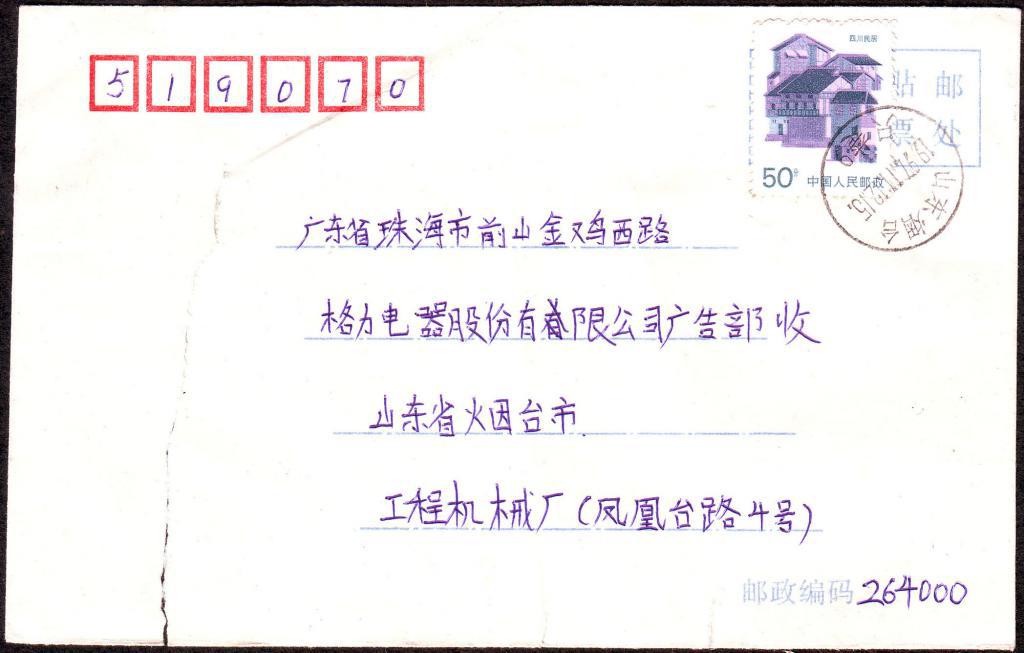 519070
四川民居
50分 中国人民邮政
贴邮
票处
山东烟台
广东省珠海市前山金鸡西路
格力电器股份有限公司广告部 收
山东省烟台市
工程机械厂(凤凰台路4号)
邮政编码 264000